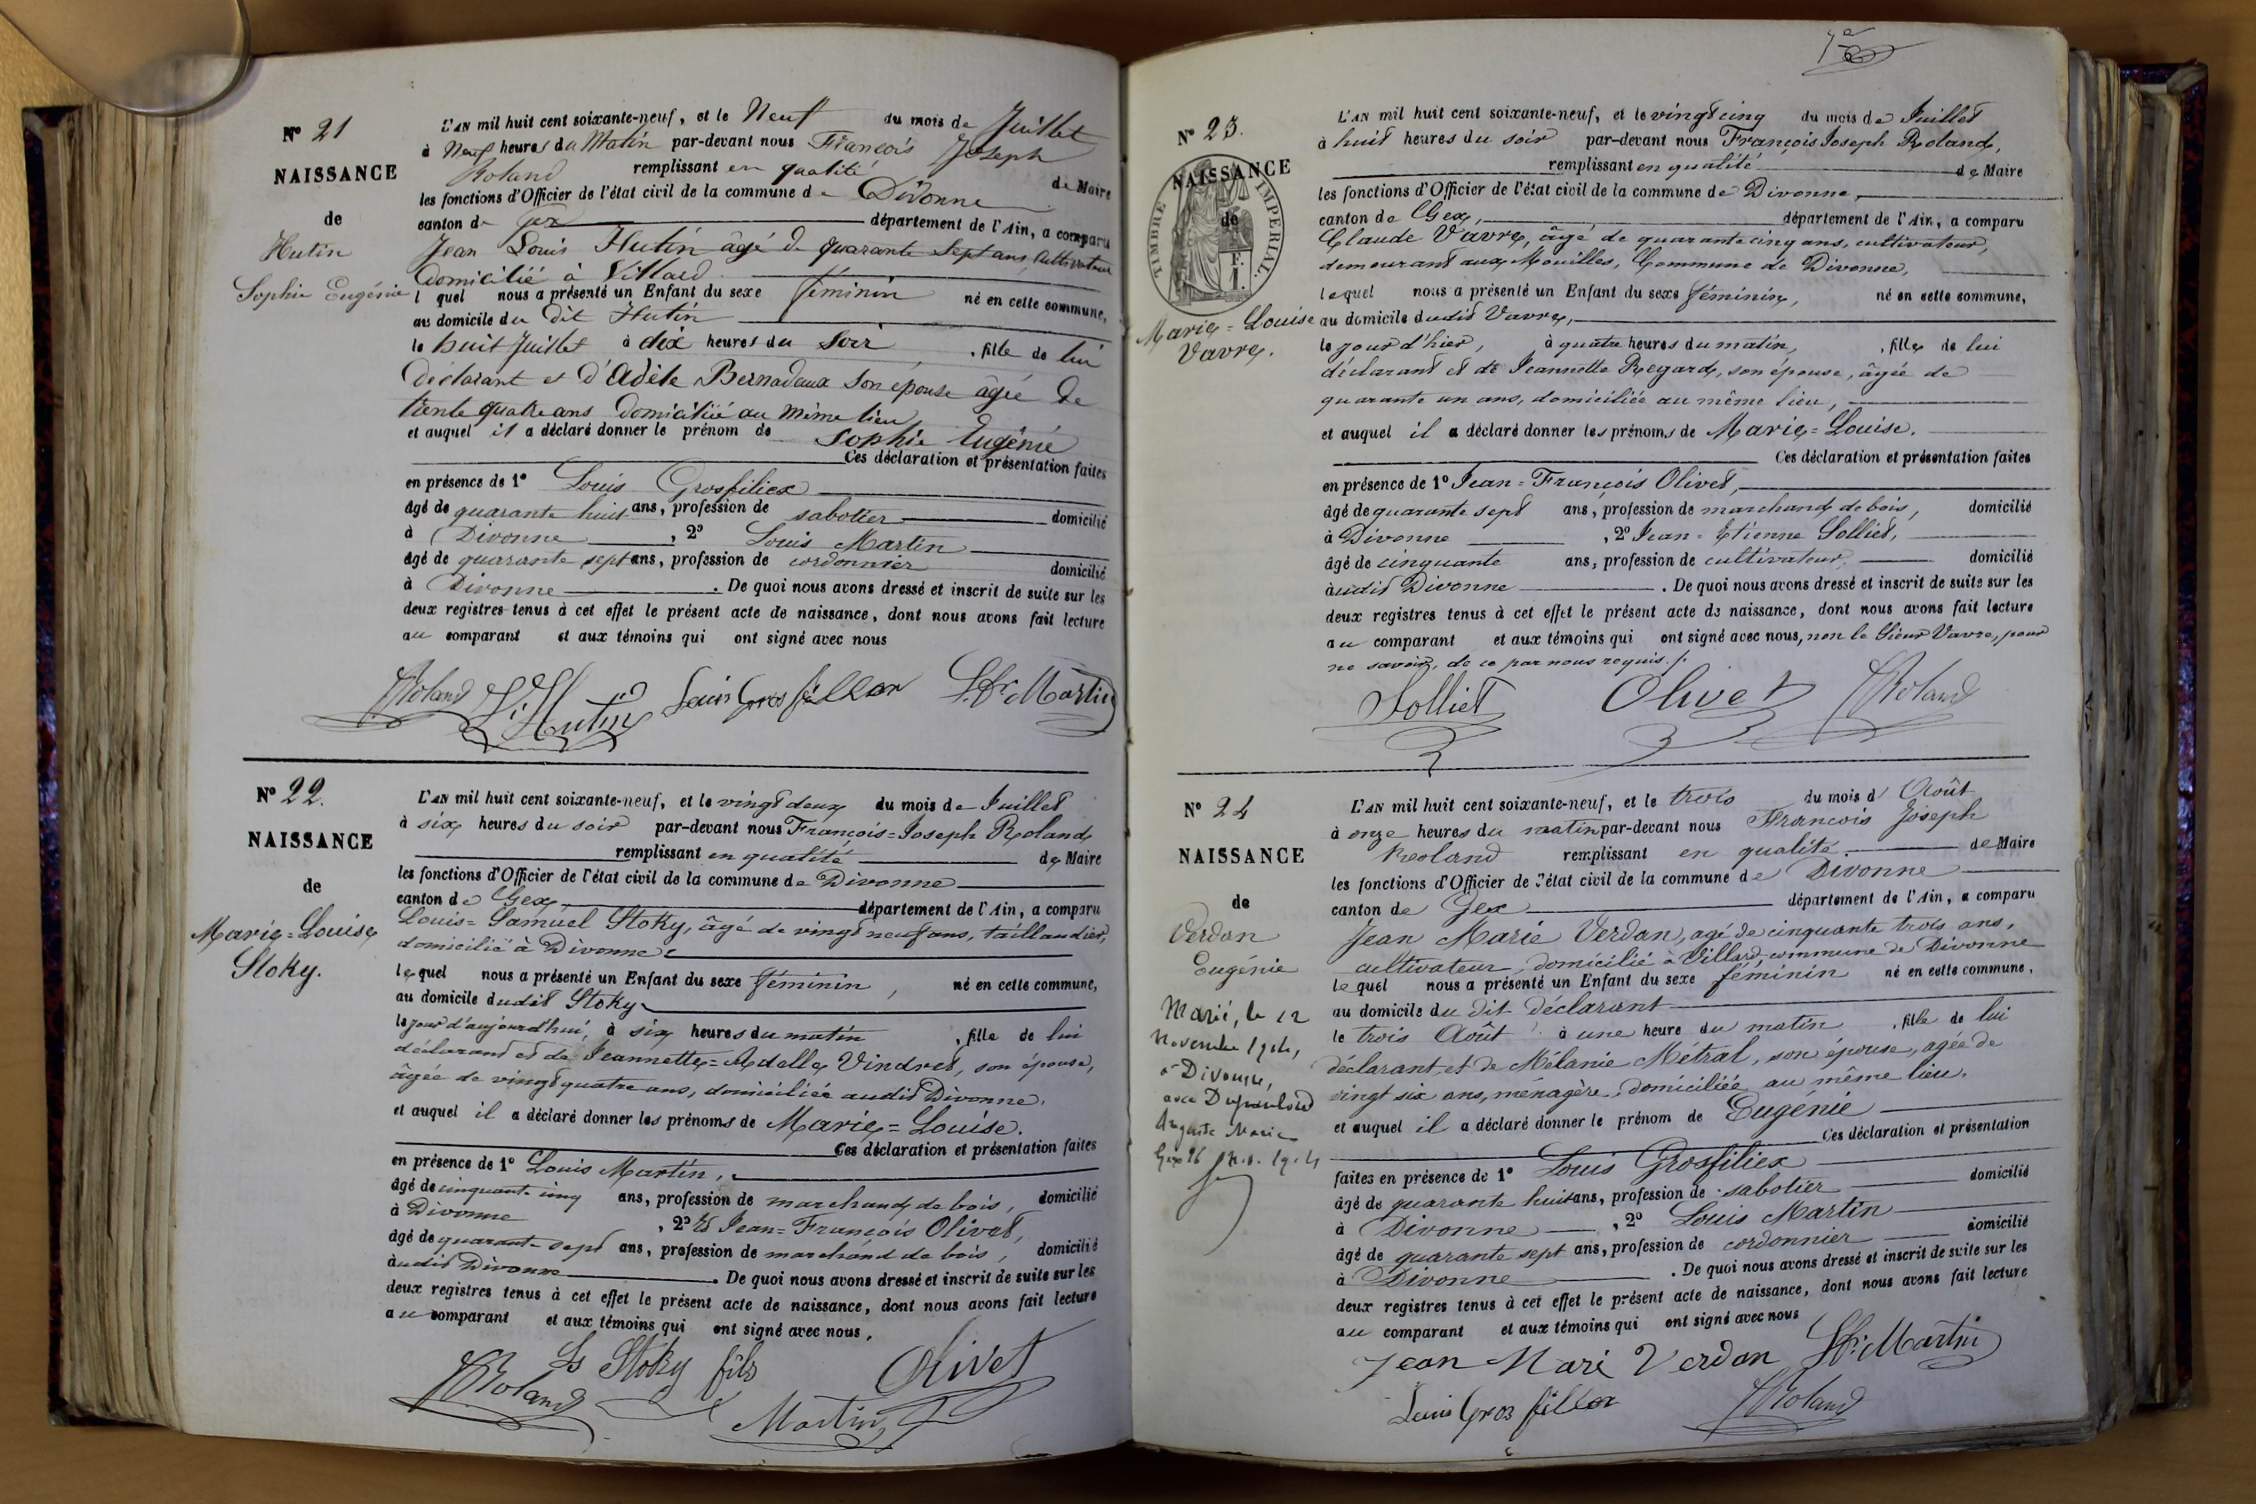 N° 21
NAISSANCE
de
Hutin
Sophie Eugénie
L'AN mil huit cent soixante-neuf, et le Neuf du mois de Juillet
à Neuf heures du Matin par-devant nous François Joseph
Roland remplissant en qualité de Maire
les fonctions d'Officier de l'état civil de la commune de Divonne
canton de Gex département de l'Ain, a comparu
Jean Louis Hutin âgé de quarante Sept ans, Cultivateur
Domicilié à Villard
l quel nous a présenté un Enfant du sexe féminin né en cette commune,
au domicile du Dit Hutin
le huit Juillet à dix heures du Soir , fille de lui
déclarant et d'Adèle Bernadaux Son épouse âgée de
trente quatre ans Domiciliée au même lieu
et auquel il a déclaré donner le prénom de Sophie Eugénie
Ces déclaration et présentation faites
en présence de 1° Louis Grosfiliex
âgé de quarante huit ans, profession de sabotier domicilié
à Divonne , 2° Louis Martin
âgé de quarante sept ans, profession de cordonnier domicilié
à Divonne . De quoi nous avons dressé et inscrit de suite sur les
deux registres tenus à cet effet le présent acte de naissance, dont nous avons fait lecture
au comparant et aux témoins qui ont signé avec nous
Roland Hutin Louis Gros fillex Martin
N° 22.
NAISSANCE
de
Marie=Louise
Stoky.
L'AN mil huit cent soixante-neuf, et le vingt deux du mois de Juillet
à six heures du soir par-devant nous François=Joseph Roland,
remplissant en qualité de Maire
les fonctions d'Officier de l'état civil de la commune de Divonne
canton de Gex, département de l'Ain, a comparu
Louis=Samuel Stoky, âgé de vingt neuf ans, taillandier,
domicilié à Divonne
lequel nous a présenté un Enfant du sexe féminin, né en cette commune,
au domicile dudit Stoky
le jour d'aujourd'hui, à six heures du matin , fille de lui
déclarant et de Jeannette=Adelle Vindret, son épouse,
âgée de vingt quatre ans, domiciliée audit Divonne,
et auquel il a déclaré donner les prénoms de Marie=Louise.
Ces déclaration et présentation faites
en présence de 1° Louis Martin,
âgé de cinquante cinq ans, profession de marchand de bois, domicilié
à Divonne , 2° et Jean=François Olivet,
âgé de quarante sept ans, profession de marchand de bois, domicilié
àudit Divonne . De quoi nous avons dressé et inscrit de suite sur les
deux registres tenus à cet effet le présent acte de naissance, dont nous avons fait lecture
au comparant et aux témoins qui ont signé avec nous,
Ls Stoky fils Olivet
Roland Martin
N° 23.
NAISSANCE
de
TIMBRE IMPÉRIAL.
Marie=Louise
Vavre.
L'AN mil huit cent soixante-neuf, et le vingt cinq du mois de Juillet
à huit heures du soir par-devant nous François Joseph Roland,
remplissant en qualité de Maire
les fonctions d'Officier de l'état civil de la commune de Divonne,
canton de Gex, département de l'Ain, a comparu
Claude Vavre, âgé de quarante cinq ans, cultivateur,
demeurant aux Mouilles, Commune de Divonne,
lequel nous a présenté un Enfant du sexe féminin, né en cette commune,
au domicile dudit Vavre,
le jour d'hier, à quatre heures du matin, , fille de lui
déclarant et de Jeannette Regard, son épouse, âgée de
quarante un ans, domiciliée au même lieu,
et auquel il a déclaré donner les prénoms de Marie=Louise.
Ces déclaration et présentation faites
en présence de 1° Jean=François Olivet,
âgé de quarante sept ans, profession de marchand de bois, domicilié
à Divonne , 2° Jean=Etienne Solliet,
âgé de cinquante ans, profession de cultivateur, domicilié
àudit Divonne . De quoi nous avons dressé et inscrit de suite sur les
deux registres tenus à cet effet le présent acte de naissance, dont nous avons fait lecture
au comparant et aux témoins qui ont signé avec nous, non le Sieur Vavre, pour
ne savoir, de ce par nous requis./.
Solliet Olivet Roland
N° 24
NAISSANCE
de
Verdan
Eugénie
Marié, le 12
Novembre 1904,
à Divonne,
avec
Auguste Marie
Gex
L'AN mil huit cent soixante-neuf, et le trois du mois d' Août
à onze heures du matin par-devant nous François Joseph
Roland remplissant en qualité de Maire
les fonctions d'Officier de l'état civil de la commune de Divonne
canton de Gex département de l'Ain, a comparu
Jean Marie Verdan, agé de cinquante trois ans,
cultivateur, domicilié à Villard, commune de Divonne
lequel nous a présenté un Enfant du sexe féminin né en cette commune,
au domicile du dit déclarant
le trois Août à une heure du matin , fille de lui
déclarant, et de Mélanie Métral, son épouse, agée de
vingt six ans, ménagère, domiciliée au même lieu.
et auquel il a déclaré donner le prénom de Eugénie
Ces déclaration et présentation
faites en présence de 1° Louis Grosfiliex
âgé de quarante huit ans, profession de sabotier domicilié
à Divonne , 2° Louis Martin
âgé de quarante sept ans, profession de cordonnier domicilié
à Divonne . De quoi nous avons dressé et inscrit de suite sur les
deux registres tenus à cet effet le présent acte de naissance, dont nous avons fait lecture
au comparant et aux témoins qui ont signé avec nous
Jean Mari Verdan Martin
Louis Gros fillex Roland